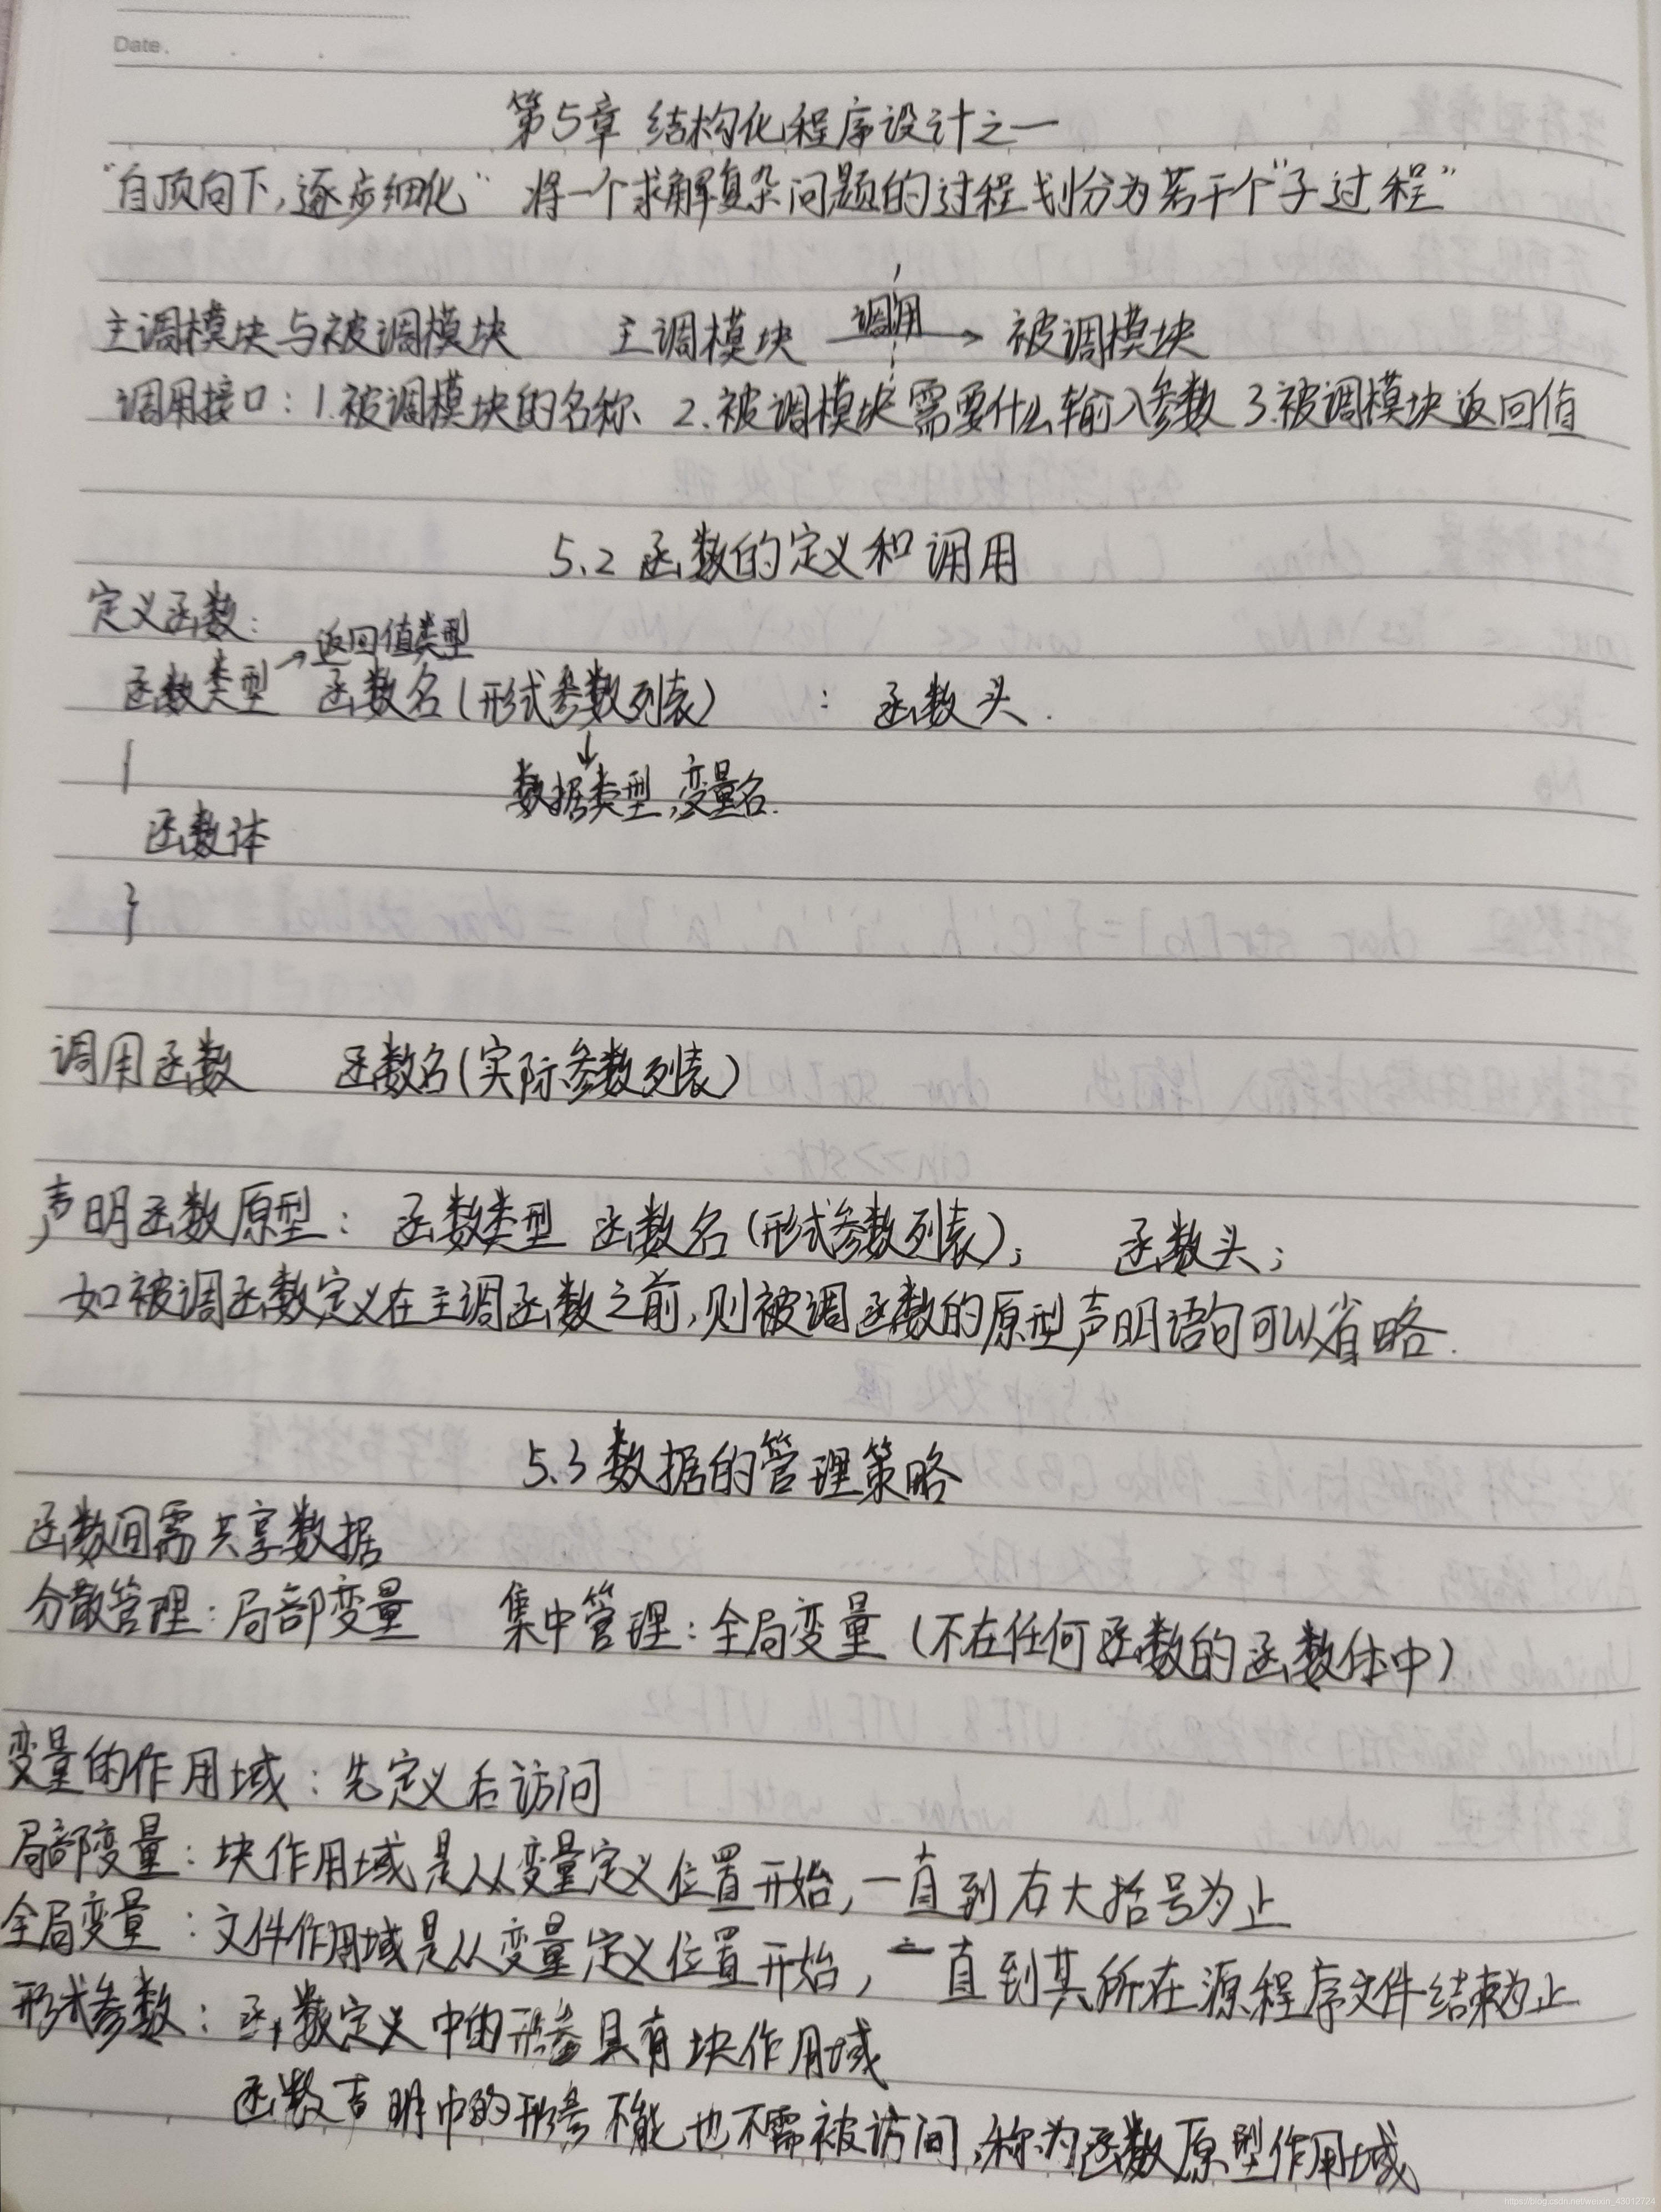 Date.
第5章 结构化程序设计之一
"自顶向下,逐步细化" 将一个求解复杂问题的过程划分为若干个"子过程"
主调模块与被调模块 主调模块 调用→ 被调模块
调用接口: 1.被调模块的名称、 2.被调模块需要什么输入参数 3.被调模块返回值
5.2 函数的定义和调用
定义函数:
→返回值类型
函数类型 函数名(形式参数列表) : 函数头.
{ ↓
数据类型,变量名.
函数体
}
调用函数 函数名(实际参数列表)
声明函数原型: 函数类型 函数名(形式参数列表); 函数头;
如被调函数定义在主调函数之前,则被调函数的原型声明语句可以省略.
5.3 数据的管理策略
函数间需共享数据
分散管理:局部变量 集中管理:全局变量(不在任何函数的函数体中)
变量的作用域:先定义后访问
局部变量:块作用域是从变量定义位置开始,一直到右大括号为止
全局变量:文件作用域是从变量定义位置开始,一直到其所在源程序文件结束为止
形式参数:函数定义中的形参具有块作用域
函数声明中的形参不能也不需被访问,称为函数原型作用域
https://blog.csdn.net/weixin_43012724